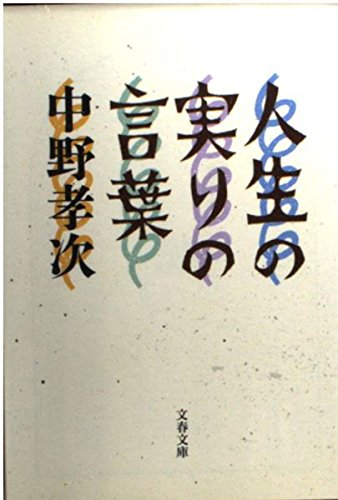 人生の
実りの
言葉
中野孝次
文春文庫